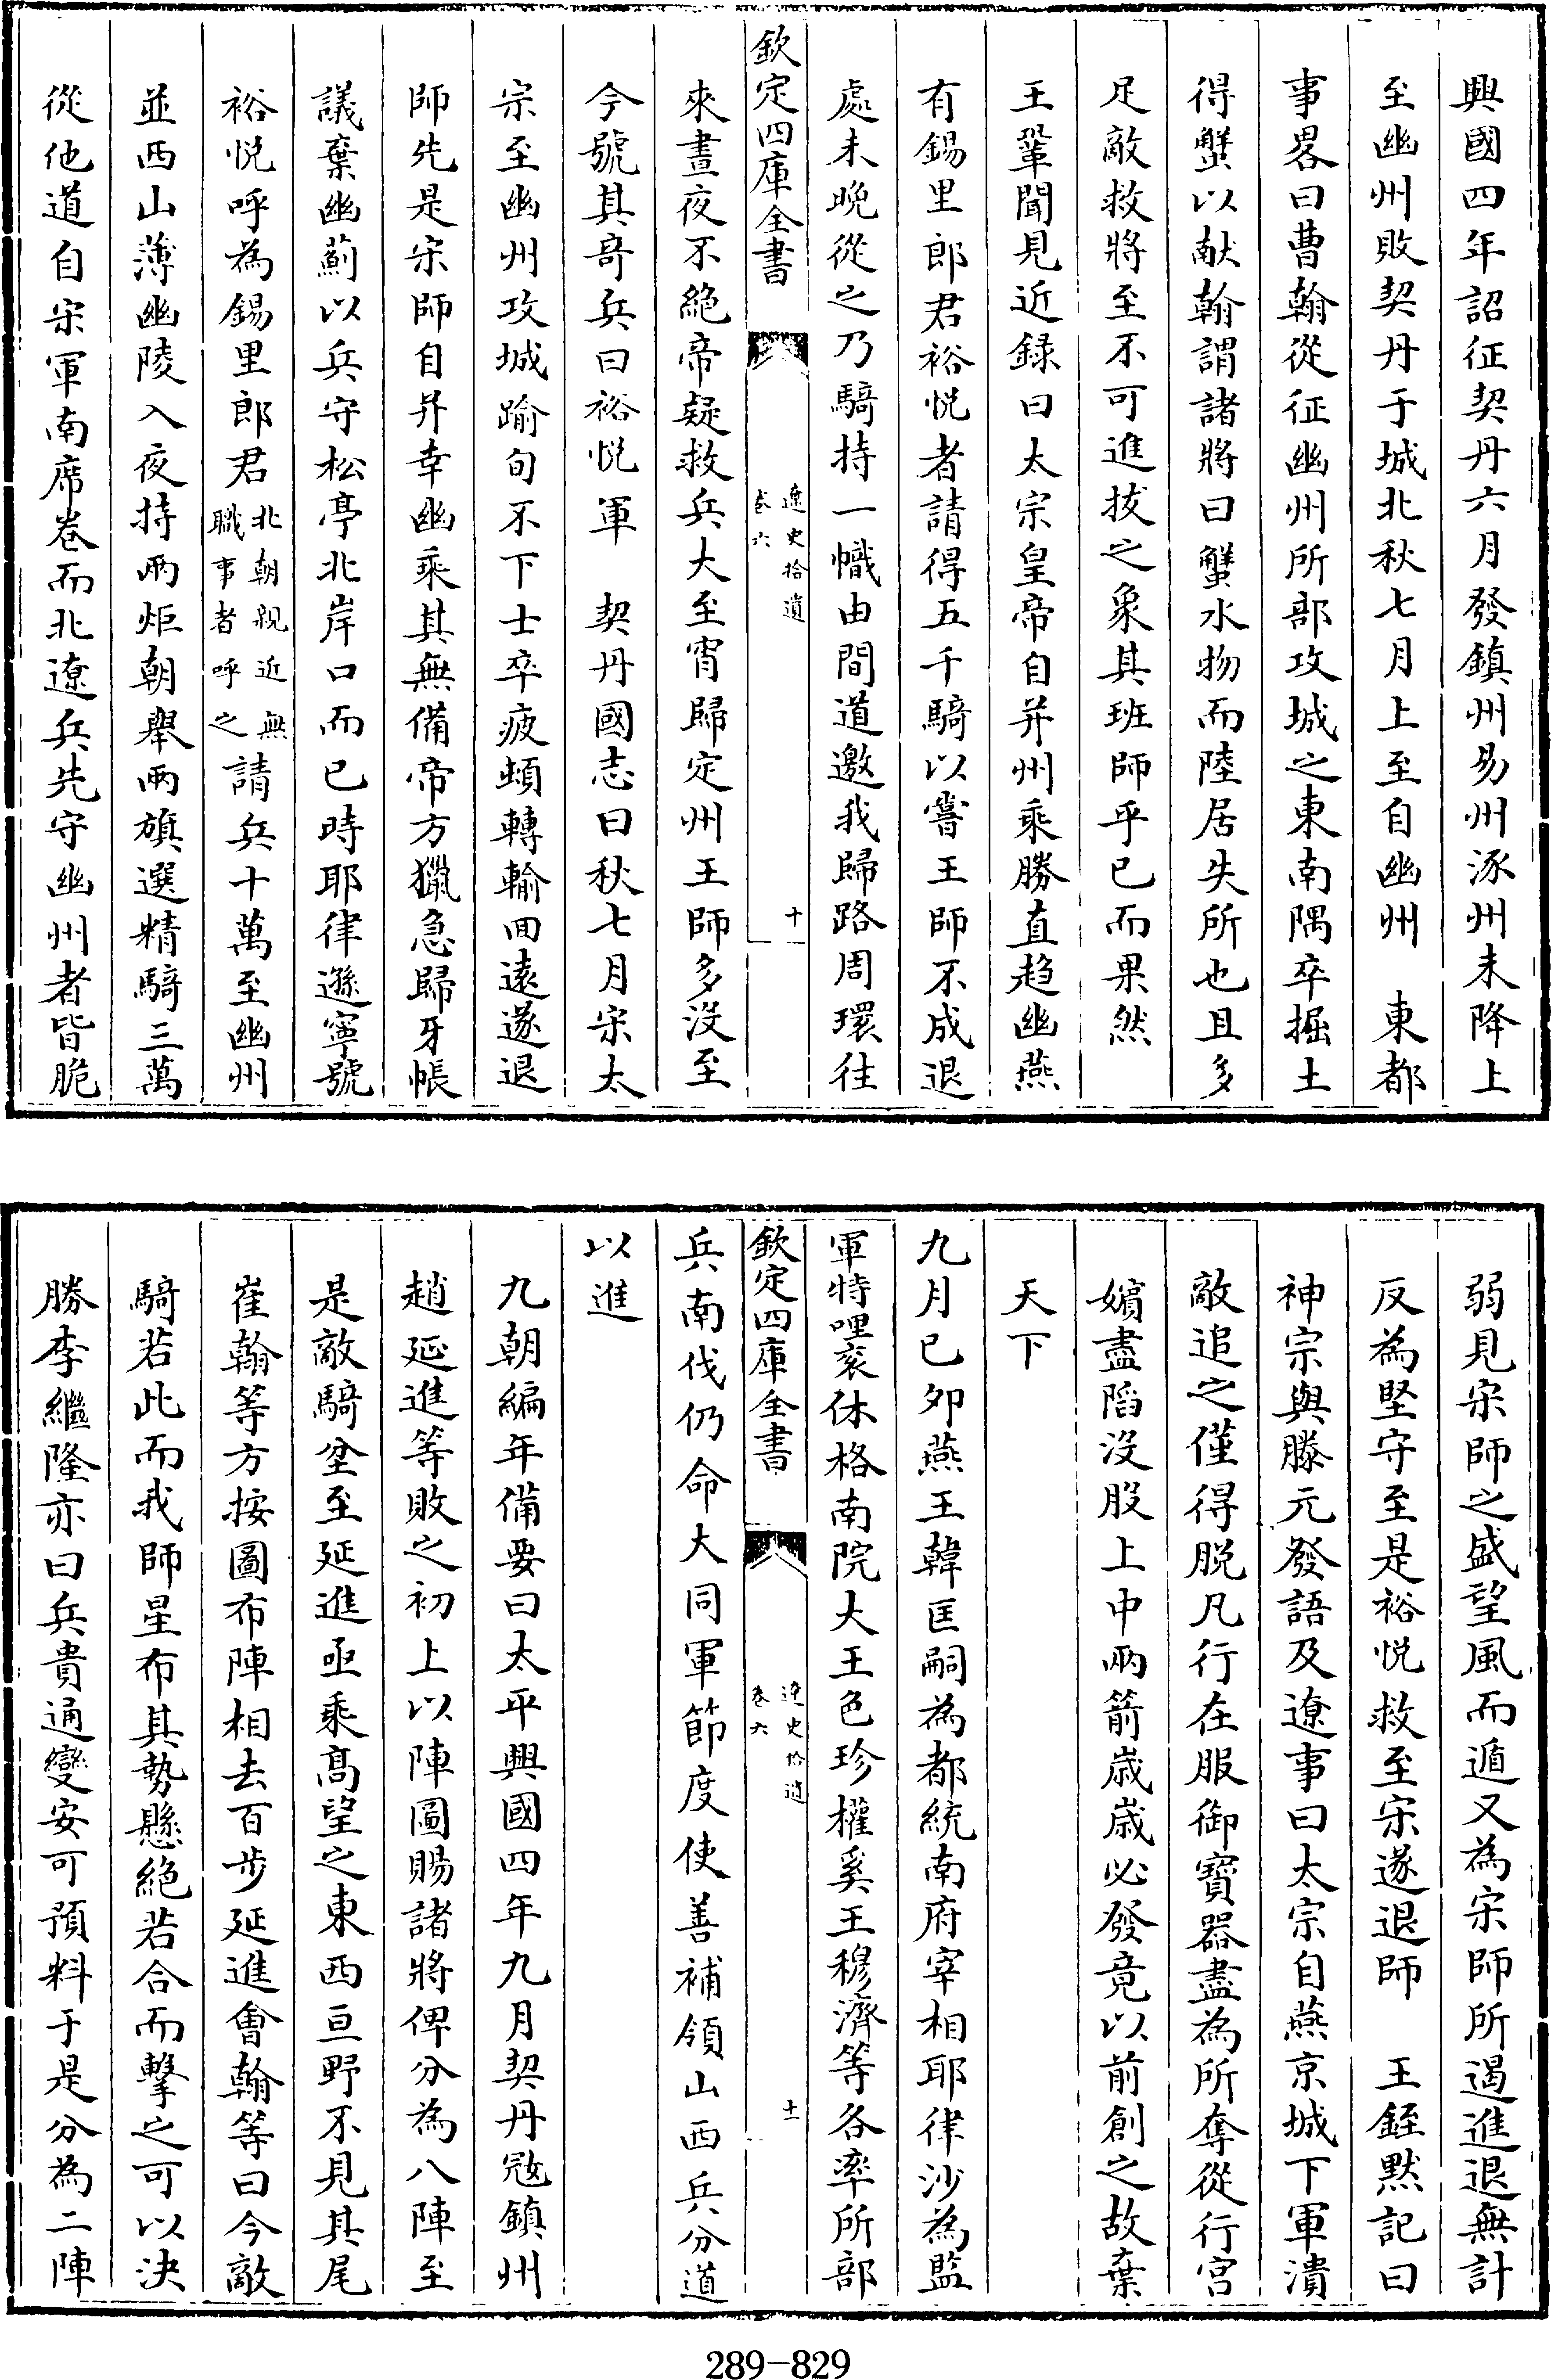 興國四年詔征契丹六月發鎮州易州涿州未降上
至幽州敗契丹于城北秋七月上至自幽州　東都
事畧曰曹翰從征幽州所部攻城之東南隅卒掘土
得蟹以献翰謂諸將曰蟹水物而陸居失所也且多
足敵救將至不可進拔之象其班師乎已而果然
王鞏聞見近録曰太宗皇帝自并州乘勝直趋幽燕
有錫里郎君裕悦者請得五千騎以嘗王師不成退
處未晩從之乃騎持一幟由間道邀我歸路周環往
欽定四庫全書
遼史拾遺
卷六
十
來晝夜不絶帝疑救兵大至宵歸定州王師多没至
今號其奇兵曰裕悦軍　契丹國志曰秋七月宋太
宗至幽州攻城踰旬不下士卒疲頓轉輸回遠遂退
師先是宋師自并幸幽乘其無備帝方獵急歸牙帳
議棄幽薊以兵守松亭北岸口而已時耶律遜寧號
裕悦呼為錫里郎君北朝親近無職事者呼之請兵十萬至幽州
並西山薄幽陵入夜持兩炬朝舉兩旗選精騎三萬
從他道自宋軍南席卷而北遼兵先守幽州者皆脆
弱見宋師之盛望風而遁又為宋師所遏進退無計
反為堅守至是裕悦救至宋遂退師　王銍黙記曰
神宗與滕元發語及遼事曰太宗自燕京城下軍潰
敵追之僅得脱凡行在服御寶器盡為所奪從行宫
嬪盡䧟没股上中兩箭歲歲必發竟以前創之故棄
天下
九月已夘燕王韓匡嗣為都統南府宰相耶律沙為監
軍特哩衮休格南院大王色珍權奚王穆濟等各率所部
欽定四庫全書
遼史拾遺
卷六
十一
兵南伐仍命大同軍節度使善補領山西兵分道
以進
九朝編年備要曰太平興國四年九月契丹冦鎮州
趙延進等敗之初上以陣圖賜諸將俾分為八陣至
是敵騎坌至延進亟乘高望之東西亘野不見其尾
崔翰等方按圖布陣相去百步延進㑹翰等曰今敵
騎若此而我師星布其勢懸絶若合而擊之可以決
勝李繼隆亦曰兵貴通變安可預料于是分為二陣
289-829